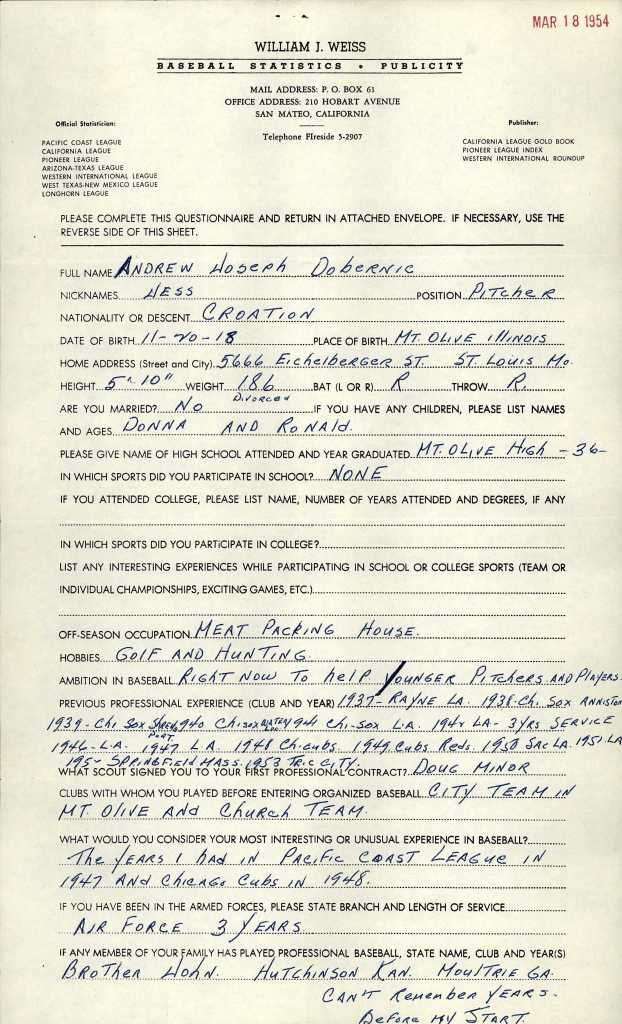 MAR 18 1954
WILLIAM J. WEISS
BASEBALL STATISTICS • PUBLICITY
MAIL ADDRESS: P. O. BOX 61
OFFICE ADDRESS: 210 HOBART AVENUE
SAN MATEO, CALIFORNIA
Telephone FIreside 5-2907
Official Statistician:
PACIFIC COAST LEAGUE
CALIFORNIA LEAGUE
PIONEER LEAGUE
ARIZONA-TEXAS LEAGUE
WESTERN INTERNATIONAL LEAGUE
WEST TEXAS-NEW MEXICO LEAGUE
LONGHORN LEAGUE
Publisher:
CALIFORNIA LEAGUE GOLD BOOK
PIONEER LEAGUE INDEX
WESTERN INTERNATIONAL ROUNDUP
PLEASE COMPLETE THIS QUESTIONNAIRE AND RETURN IN ATTACHED ENVELOPE. IF NECESSARY, USE THE
REVERSE SIDE OF THIS SHEET.
FULL NAME ANDREW Joseph Dobernic
NICKNAMES JESS POSITION PITCHER
NATIONALITY OR DESCENT CROATION
DATE OF BIRTH 11-20-18 PLACE OF BIRTH MT. OLIVE ILLINOIS
HOME ADDRESS (Street and City) 5666 Eichelberger ST. ST. LOUIS Mo.
HEIGHT 5' 10" WEIGHT 186 BAT (L OR R) R THROW R.
ARE YOU MARRIED? NO DIVORCED IF YOU HAVE ANY CHILDREN, PLEASE LIST NAMES
AND AGES DONNA AND RONALD.
PLEASE GIVE NAME OF HIGH SCHOOL ATTENDED AND YEAR GRADUATED MT. OLIVE HIGH - 36-
IN WHICH SPORTS DID YOU PARTICIPATE IN SCHOOL? NONE
IF YOU ATTENDED COLLEGE, PLEASE LIST NAME, NUMBER OF YEARS ATTENDED AND DEGREES, IF ANY
IN WHICH SPORTS DID YOU PARTICIPATE IN COLLEGE?
LIST ANY INTERESTING EXPERIENCES WHILE PARTICIPATING IN SCHOOL OR COLLEGE SPORTS (TEAM OR
INDIVIDUAL CHAMPIONSHIPS, EXCITING GAMES, ETC.)
OFF-SEASON OCCUPATION MEAT PACKING HOUSE.
HOBBIES GOLF AND HUNTING.
AMBITION IN BASEBALL RIGHT NOW TO help YOUNGER PITCHERS AND PLAYERS
PREVIOUS PROFESSIONAL EXPERIENCE (CLUB AND YEAR) 1937- RAYNE LA. 1938-Chi. SOX ANNISTON
1939- Chi SOX SHREVEPORT 1940 Chi SOX 1941 Chi-SOX L.A. LA- 3 YRS SERVICE
1946- L.A. 1947 L.A. 1948 Chi Cubs. 1949 Cubs Reds. 1950 SAC LA. 1951 LA
SPRINGFIELD MASS. 1953 TRI-CITY.
WHAT SCOUT SIGNED YOU TO YOUR FIRST PROFESSIONAL CONTRACT? DOUG MINOR
CLUBS WITH WHOM YOU PLAYED BEFORE ENTERING ORGANIZED BASEBALL CITY TEAM IN
MT. OLIVE AND Church TEAM.
WHAT WOULD YOU CONSIDER YOUR MOST INTERESTING OR UNUSUAL EXPERIENCE IN BASEBALL?
The YEARS I had IN PACIFIC COAST LEAGUE IN
1947 AND Chicago Cubs IN 1948.
IF YOU HAVE BEEN IN THE ARMED FORCES, PLEASE STATE BRANCH AND LENGTH OF SERVICE
AIR FORCE 3 YEARS
IF ANY MEMBER OF YOUR FAMILY HAS PLAYED PROFESSIONAL BASEBALL, STATE NAME, CLUB AND YEAR(S)
BROTHER JOHN. HUTCHINSON KAN. MOULTRIE GA.
CAN'T Remember YEARS.
Before MY START.